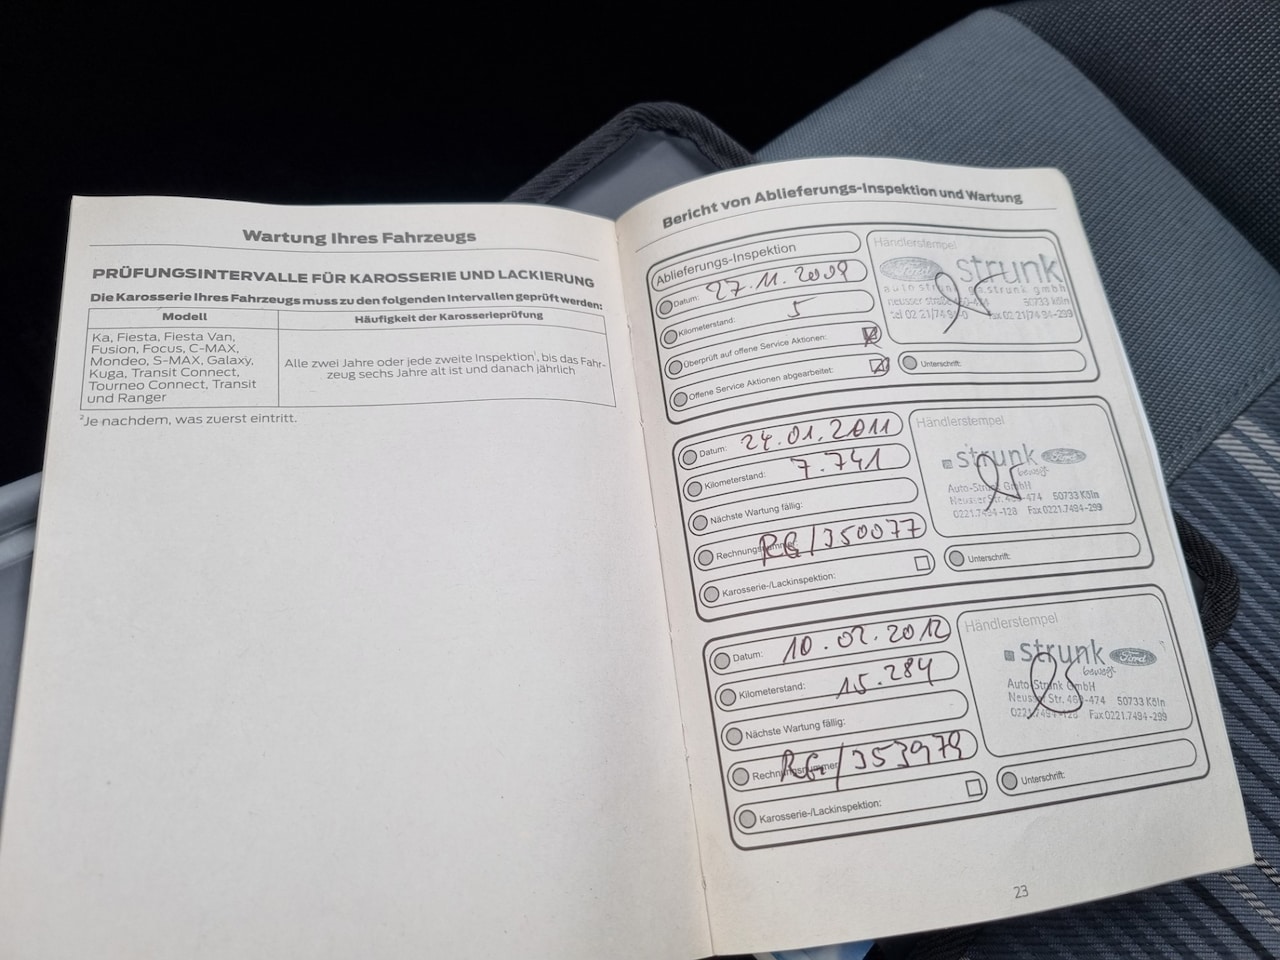 Wartung Ihres Fahrzeugs
PRÜFUNGSINTERVALLE FÜR KAROSSERIE UND LACKIERUNG
Die Karosserie Ihres Fahrzeugs muss zu den folgenden Intervallen geprüft werden:
Modell
Häufigkeit der Karosserieprüfung
Ka, Fiesta, Fiesta Van,
Fusion, Focus, C-MAX,
Mondeo, S-MAX, Galaxy,
Kuga, Transit Connect,
Tourneo Connect, Transit
und Ranger
Alle zwei Jahre oder jede zweite Inspektion¹, bis das Fahr-
zeug sechs Jahre alt ist und danach jährlich
²Je nachdem, was zuerst eintritt.
Bericht von Ablieferungs-Inspektion und Wartung
Ablieferungs-Inspektion
Datum: 27.11.2009
Kilometerstand: 5
Überprüft auf offene Service Aktionen:
Offene Service Aktionen abgearbeitet:
Händlerstempel
Ford strunk
auto strunk gmbh
neusser straße 460-474 50733 köln
fax 02 21/74 94-299
Unterschrift:
Datum: 24.01.2011
Kilometerstand: 7.741
Nächste Wartung fällig:
Rechnungsnummer: RG/350077
Karosserie-/Lackinspektion:
Händlerstempel
strunk Ford
bewegt
Auto-Strunk GmbH
Neusser Str. 460-474 50733 Köln
0221.7494-128 Fax 0221.7494-299
Unterschrift:
Datum: 10.02.2012
Kilometerstand: 15.284
Nächste Wartung fällig:
Rechnungsnummer: RG/353979
Karosserie-/Lackinspektion:
Händlerstempel
strunk Ford
bewegt
Auto Strunk GmbH
Neusser Str. 460-474 50733 Köln
0221.7494-128 Fax 0221.7494-299
Unterschrift:
23